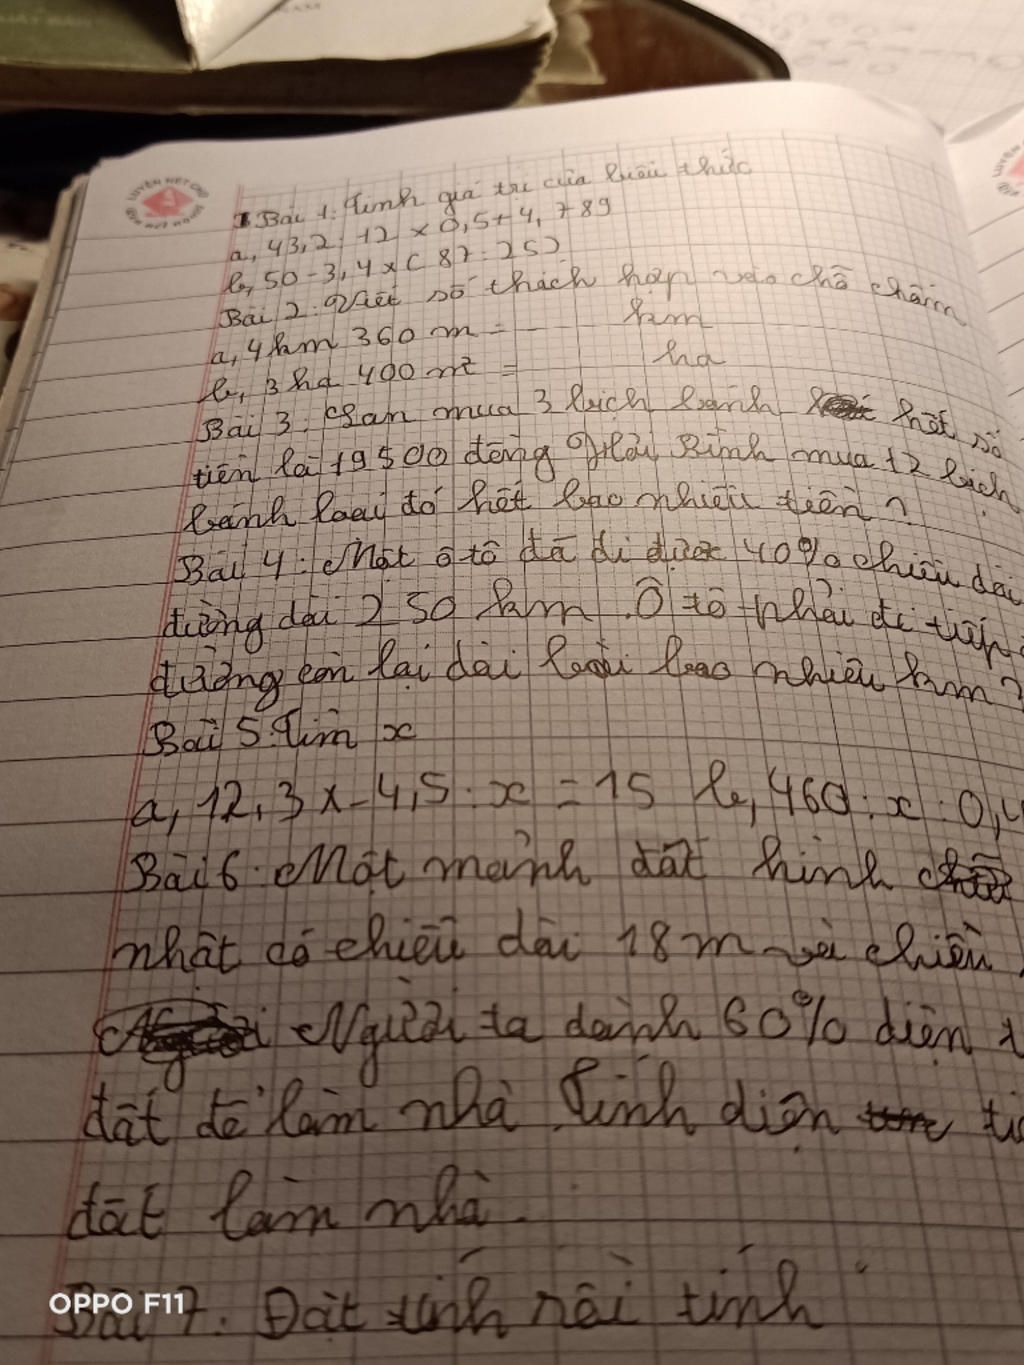 LUYỆN NÉT CHỮ
Bài 1: Tính giá trị của biểu thức
a, 43,2 : 12 x 0,5 + 4,789
b, 50 - 3,4 x ( 87 : 25)
Bài 2: Viết số thích hợp vào chỗ chấm
a, 4 km 360 m = km
b, 3 ha 400 m² = ha
Bài 3: Lan mua 3 bịch bánh hết số
tiền là 19500 đồng Hỏi Bình mua 12 bịch
bánh loại đó hết bao nhiêu tiền?
Bài 4: Một ô tô đã đi được 40% chiều dài
đường dài 250 km. Ô tô phải đi tiếp
đường còn lại dài bao nhiêu km?
Bài 5: Tìm x
a, 12,3 x - 4,5 : x = 15 b, 460 : x : 0,4
Bài 6: Một mảnh đất hình
nhật có chiều dài 18 m và chiều
Người ta dành 60% diện
đất để làm nhà Tính diện
đất làm nhà.
Bài 7: Đặt tính rồi tính
OPPO F11